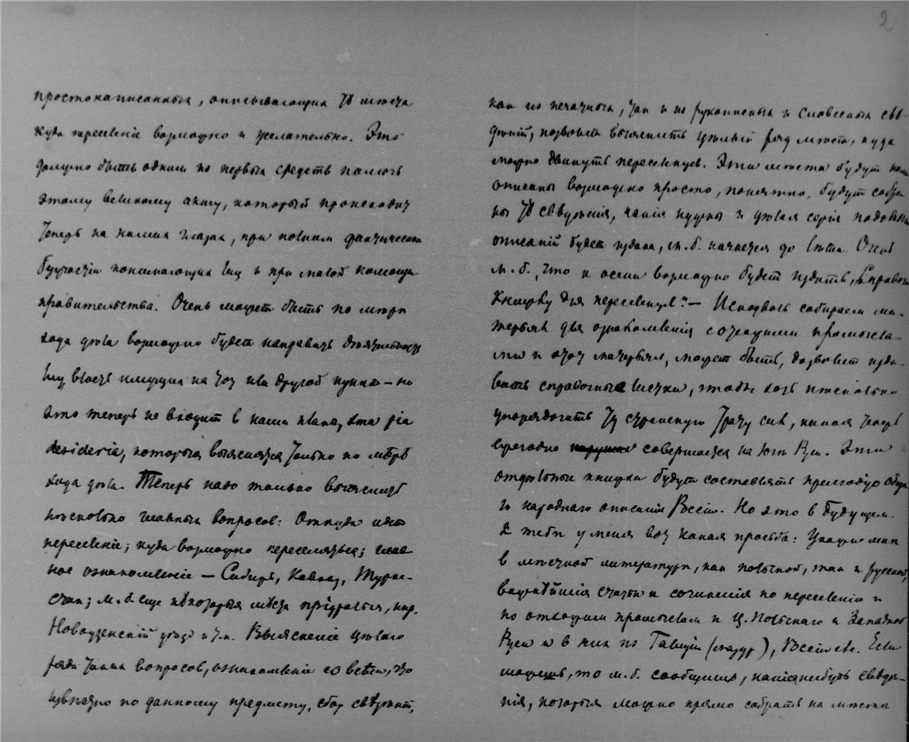 2
простонаписанныя, описывающия тѣ места
куда переселенiе возможно и желательно. Это
должно быть одним из первых средств помочь
этому великому акту, который происходит
теперь на наших глазах, при полном фактическом
безучастiи понимающих ему и при малой помощи
правительства. Очень может быть по мѣрѣ
хода дѣла возможно будет направить дѣятельность
на тот или другой пункт — но
это теперь не входит в наши планы, это pia
desideria, которыя выяснятся только по мѣрѣ
хода дѣла. Теперь надо только выяснить
нѣсколько главных вопросов: Откуда идет
переселенiе; куда возможно переселяться; глав
ное ознакомленiе — Сибирь, Кавказ, Турке-
стан; м.б. еще нѣкоторыя мѣста
Новоузенскiй уѣзд и т.п. Выясненiе цѣлаго
ряда таких вопросов, ознакомленiе со всѣм, что
извѣстно по данному предмету, сбор свѣдѣнiй,
как из печатных, так и из рукописных и словесных свѣ-
дѣнiй, позволит выяснить цѣлый ряд мѣст, куда
можно двинуть переселенцев. Эти мѣста будут
описаны возможно просто, понятно, будут собра-
ны тѣ свѣдѣнiя, какiя нужны и цѣлая серiя подобных
описанiй будет издана, м.б. начнется до лѣта. Очень
м.б., что к осени возможно будет издать „Справочн.
Книжку для переселенцев“. — Исподволь собираем ма-
терьял для ознакомленiя с отхожими промысла-
ми и этот матерьял, может быть, дозволит изда-
вать справочные листки, чтобы хоть несколько
упорядочить ту страшную трату сил, какая теперь
ежегодно совершается на юге Руси. Эти
отдѣльные книжки будут составлять
народнаго описанiя Россiи. Но это в будущем.
К тебѣ у меня вот какая просьба: Укажи мнѣ
в мѣстной литературѣ, как польской, так и русской,
важнѣйшiя статьи и сочиненiя по переселенiю и
по отхожим промыслам и Ц. Польскаго и Западной
Руси и в них из Галицiи Если
можешь, то м.б. сообщишь, какiя нибудь свѣдѣ-
нiя, которыя можно прямо собрать на мѣстѣ